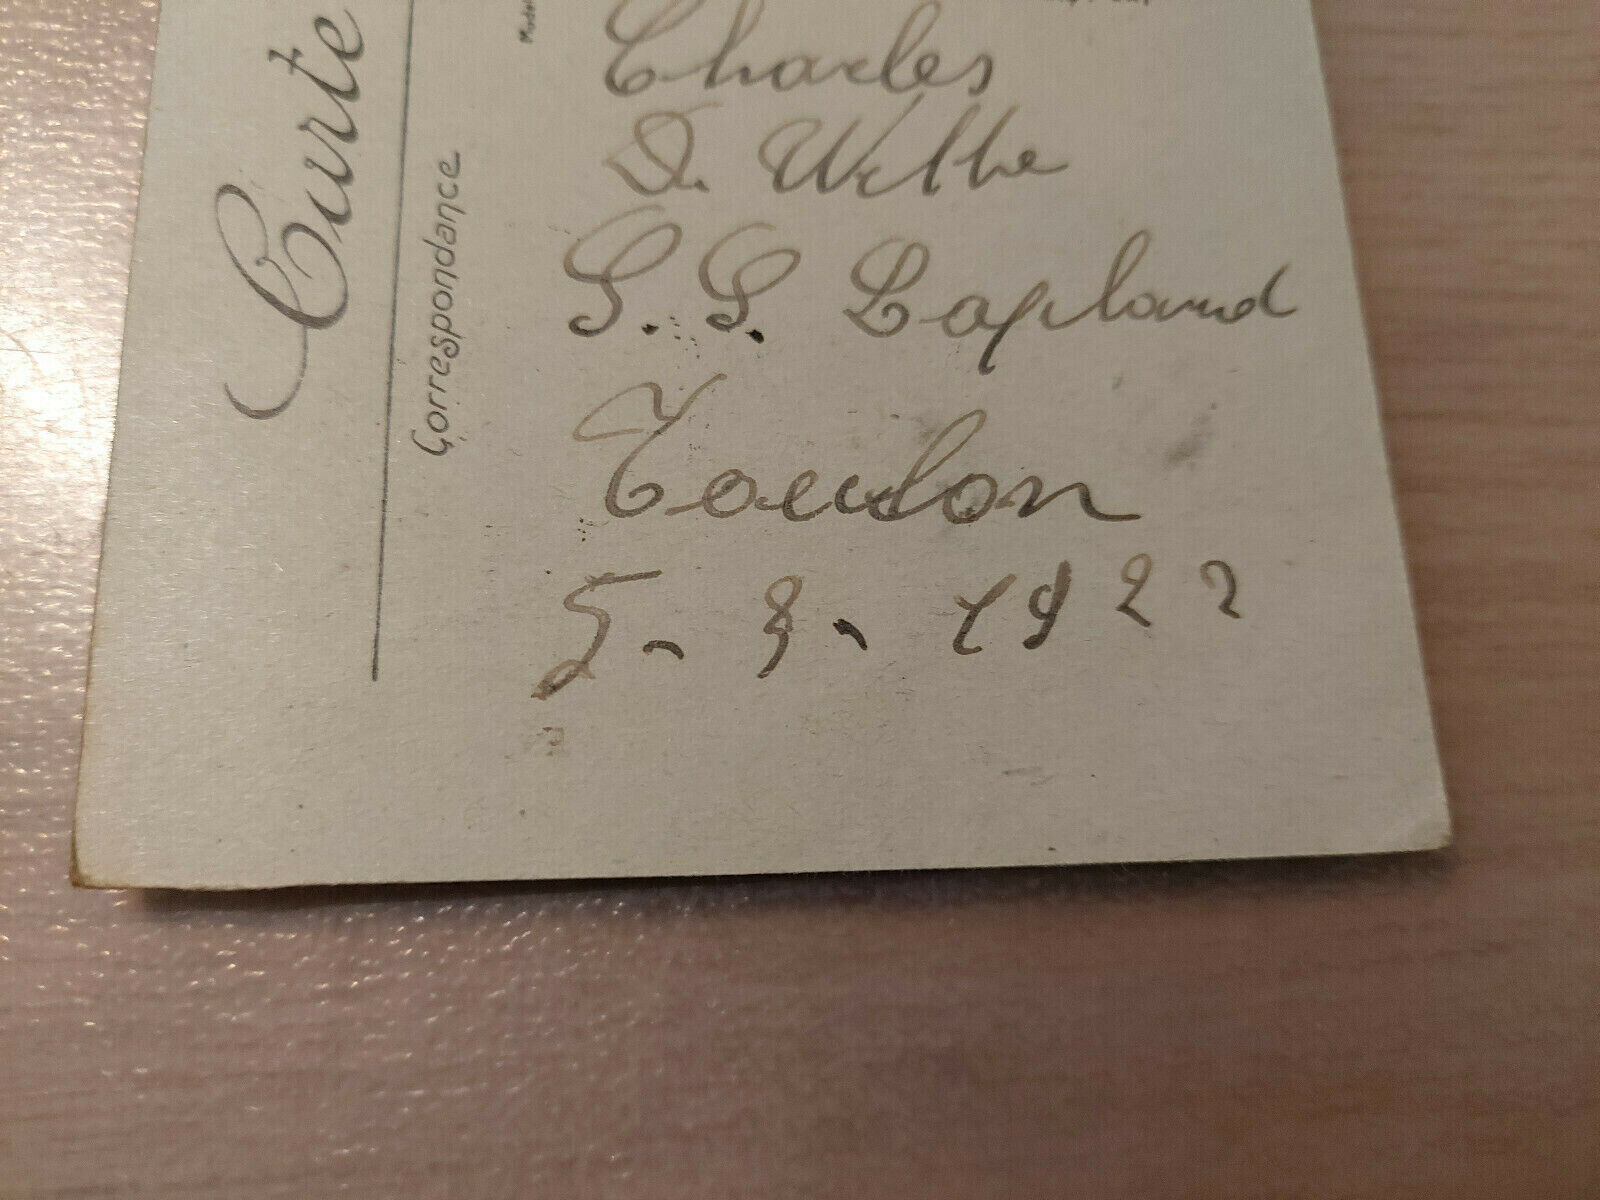 Carte
Correspondance
Charles
D. Wilhe
S. S. Lapland
Toulon
5. 3. 1922